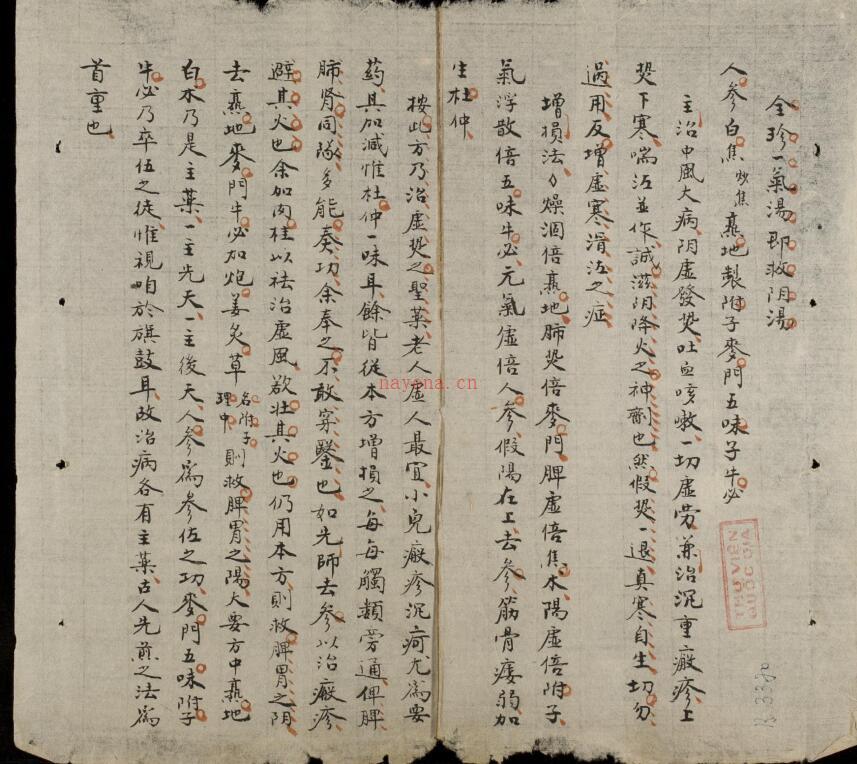 全珍一氣湯即救阴湯
人參白焦炒焦熹地製附子麥門五味子牛必
主治中風大病阴虛發焚吐血咳嗽一切虛劳兼治沉重瘢疹上
焚下寒喘泻並作誠滋阴降火之神劑也然假焚一退真寒自生切勿
過用反增虛寒滑泻之症
增損法々燥涸倍熹地肺焚倍麥門脾虛倍焦朮陽虛倍附子
氣浮散倍五味牛必元氣虛倍人參假陽在上去參筋骨痿弱加
生杜仲
按此方乃治虛焚之聖薬老人虛人最宜小兒瘢疹沉疴尤為要
药其加減惟杜仲一味耳餘皆從本方增損之每每觸類旁通俾脾
肺肾同隊多能奏功余奉之不敢穿鑿也如先師去參以治瘢疹
避其火也余加肉桂以祛治虛風欲壮其火也仍用本方則救脾胃之阴
去熹地麥門牛必加炮姜炙草名附子理中則救脾胃之陽大要方中熹地
白朮乃是主薬一主先天一主後天人參為參佐之功麥門五味附子
牛必乃卒伍之徒惟視咱於旗鼓耳故治病各有主薬古人先煎之法為
首重也
THƯ VIỆN
QUỐC GIA
R.3380
nayona.cn